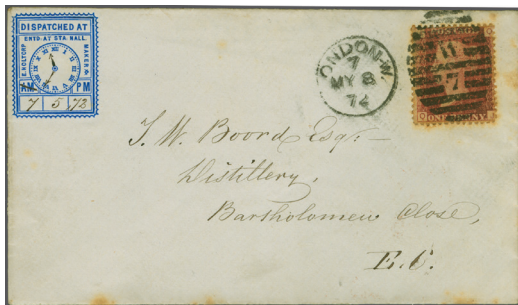 DISPATCHED AT
ENTD AT STA. HALL.
E. HOLTORP MAKER
AM PM
7 5 72
LONDON-W.
7
MY 8
72
ONE PENNY
J. W. Boord Esq:
Distillery,
Bartholomew Close,
E.C.